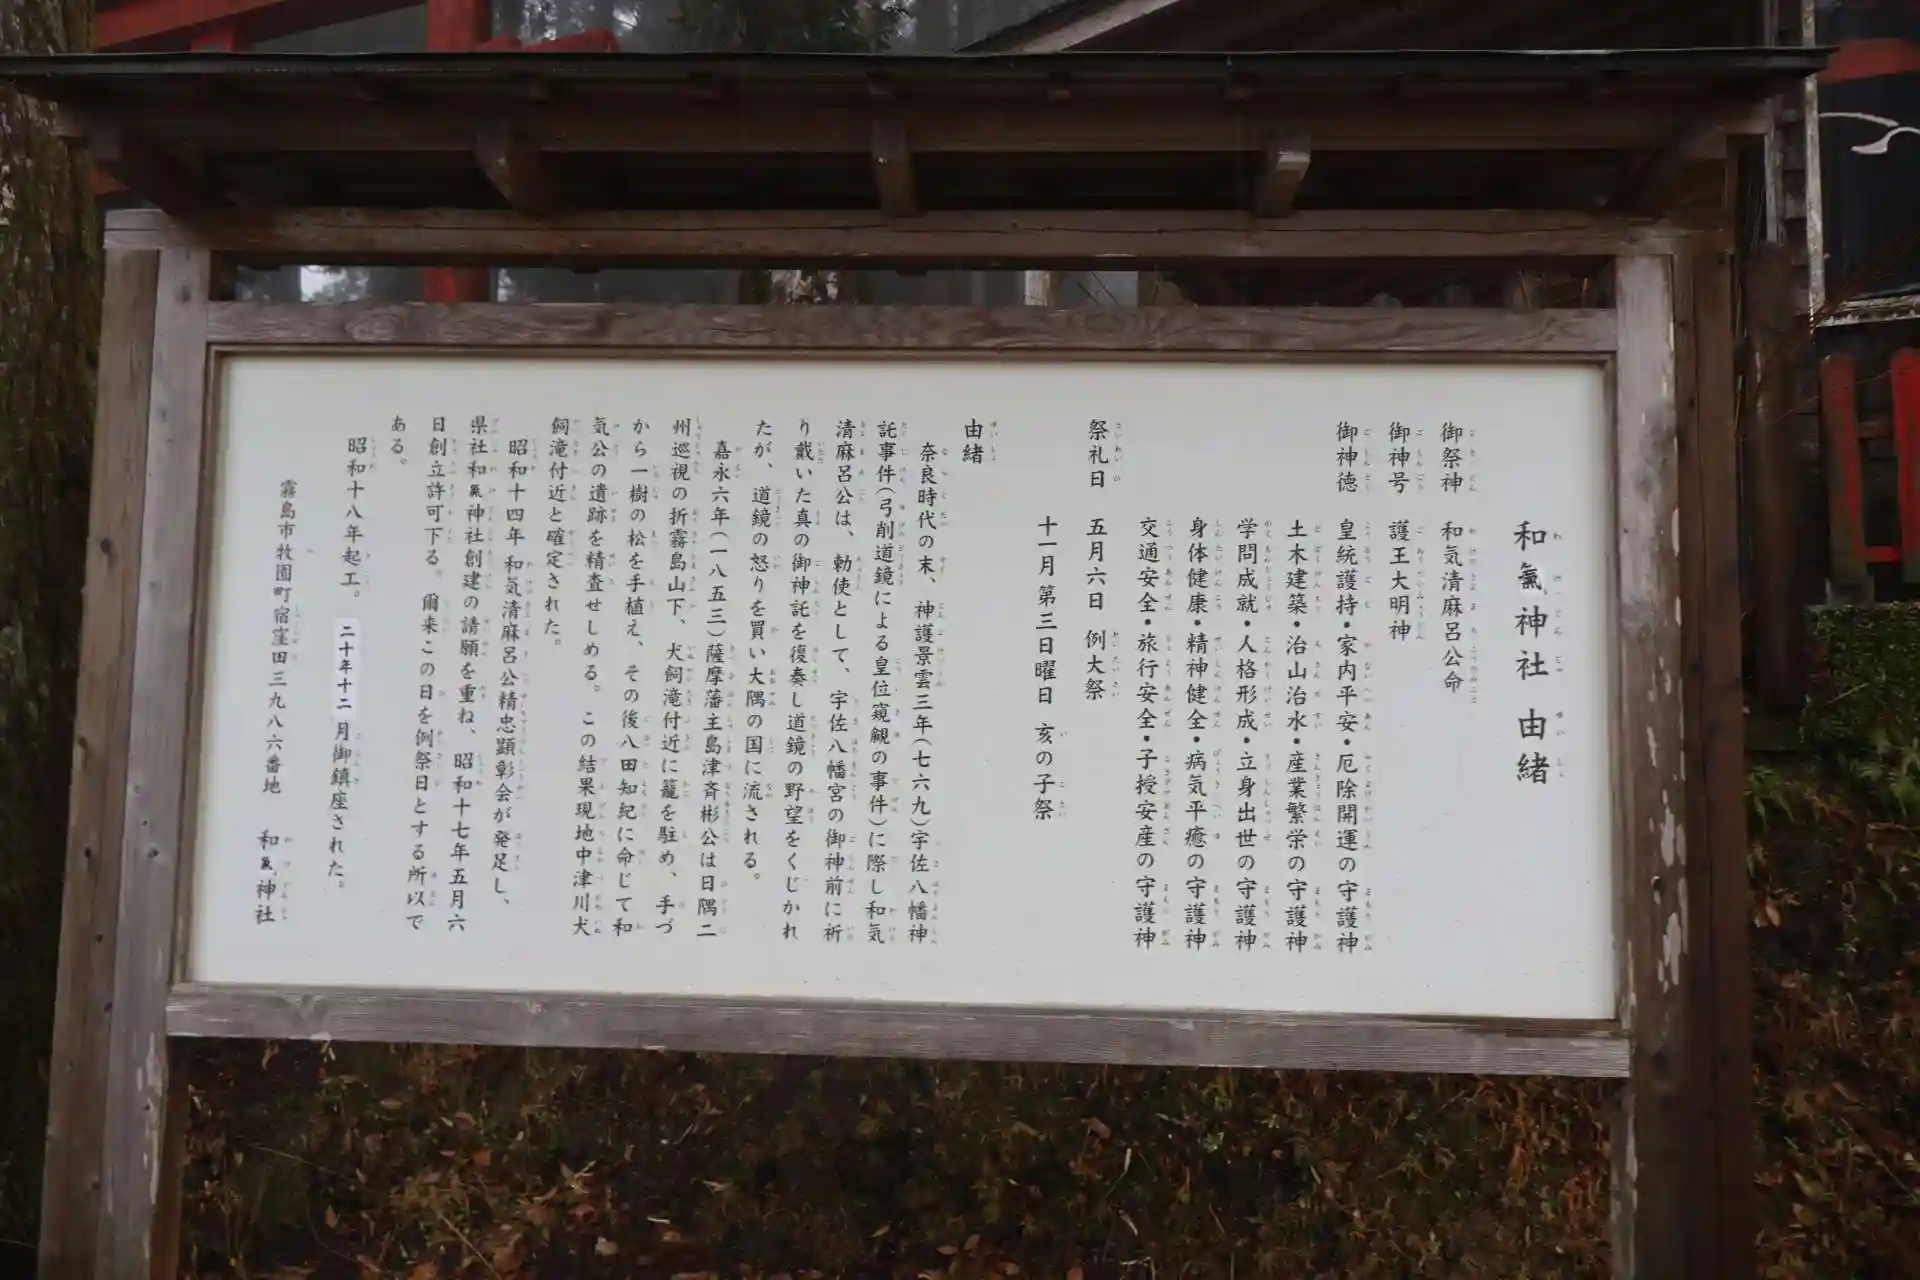 和氣神社 由緒
御祭神 和気清麻呂公命
御神号 護王大明神
御神徳 皇統護持・家内平安・厄除開運の守護神
土木建築・治山治水・産業繁栄の守護神
学問成就・人格形成・立身出世の守護神
身体健康・精神健全・病気平癒の守護神
交通安全・旅行安全・子授安産の守護神
祭礼日 五月六日 例大祭
十一月 第三日曜日 亥の子祭
由緒
奈良時代の末、神護景雲三年(七六九)宇佐八幡神
託事件(弓削道鏡による皇位窺覦の事件)に際し和気
清麻呂公は、勅使として、宇佐八幡宮の御神前に祈
り戴いた真の御神託を復奏し道鏡の野望をくじかれ
たが、道鏡の怒りを買い大隅の国に流される。
嘉永六年(一八五三)薩摩藩主島津斉彬公は日隅二
州巡視の折霧島山下、犬飼滝付近に籠を駐め、手づ
から一樹の松を手植え、その後八田知紀に命じて和
気公の遺跡を精査せしめる。この結果現地中津川犬
飼滝付近と確定された。
昭和十四年 和気清麻呂公精忠顕彰会が発足し、
県社和氣神社創建の請願を重ね、昭和十七年五月六
日創立許可下る。爾来この日を例祭日とする所以で
ある。
昭和十八年起工。二十年十二月御鎮座された。
霧島市牧園町宿窪田三九八六番地 和氣神社